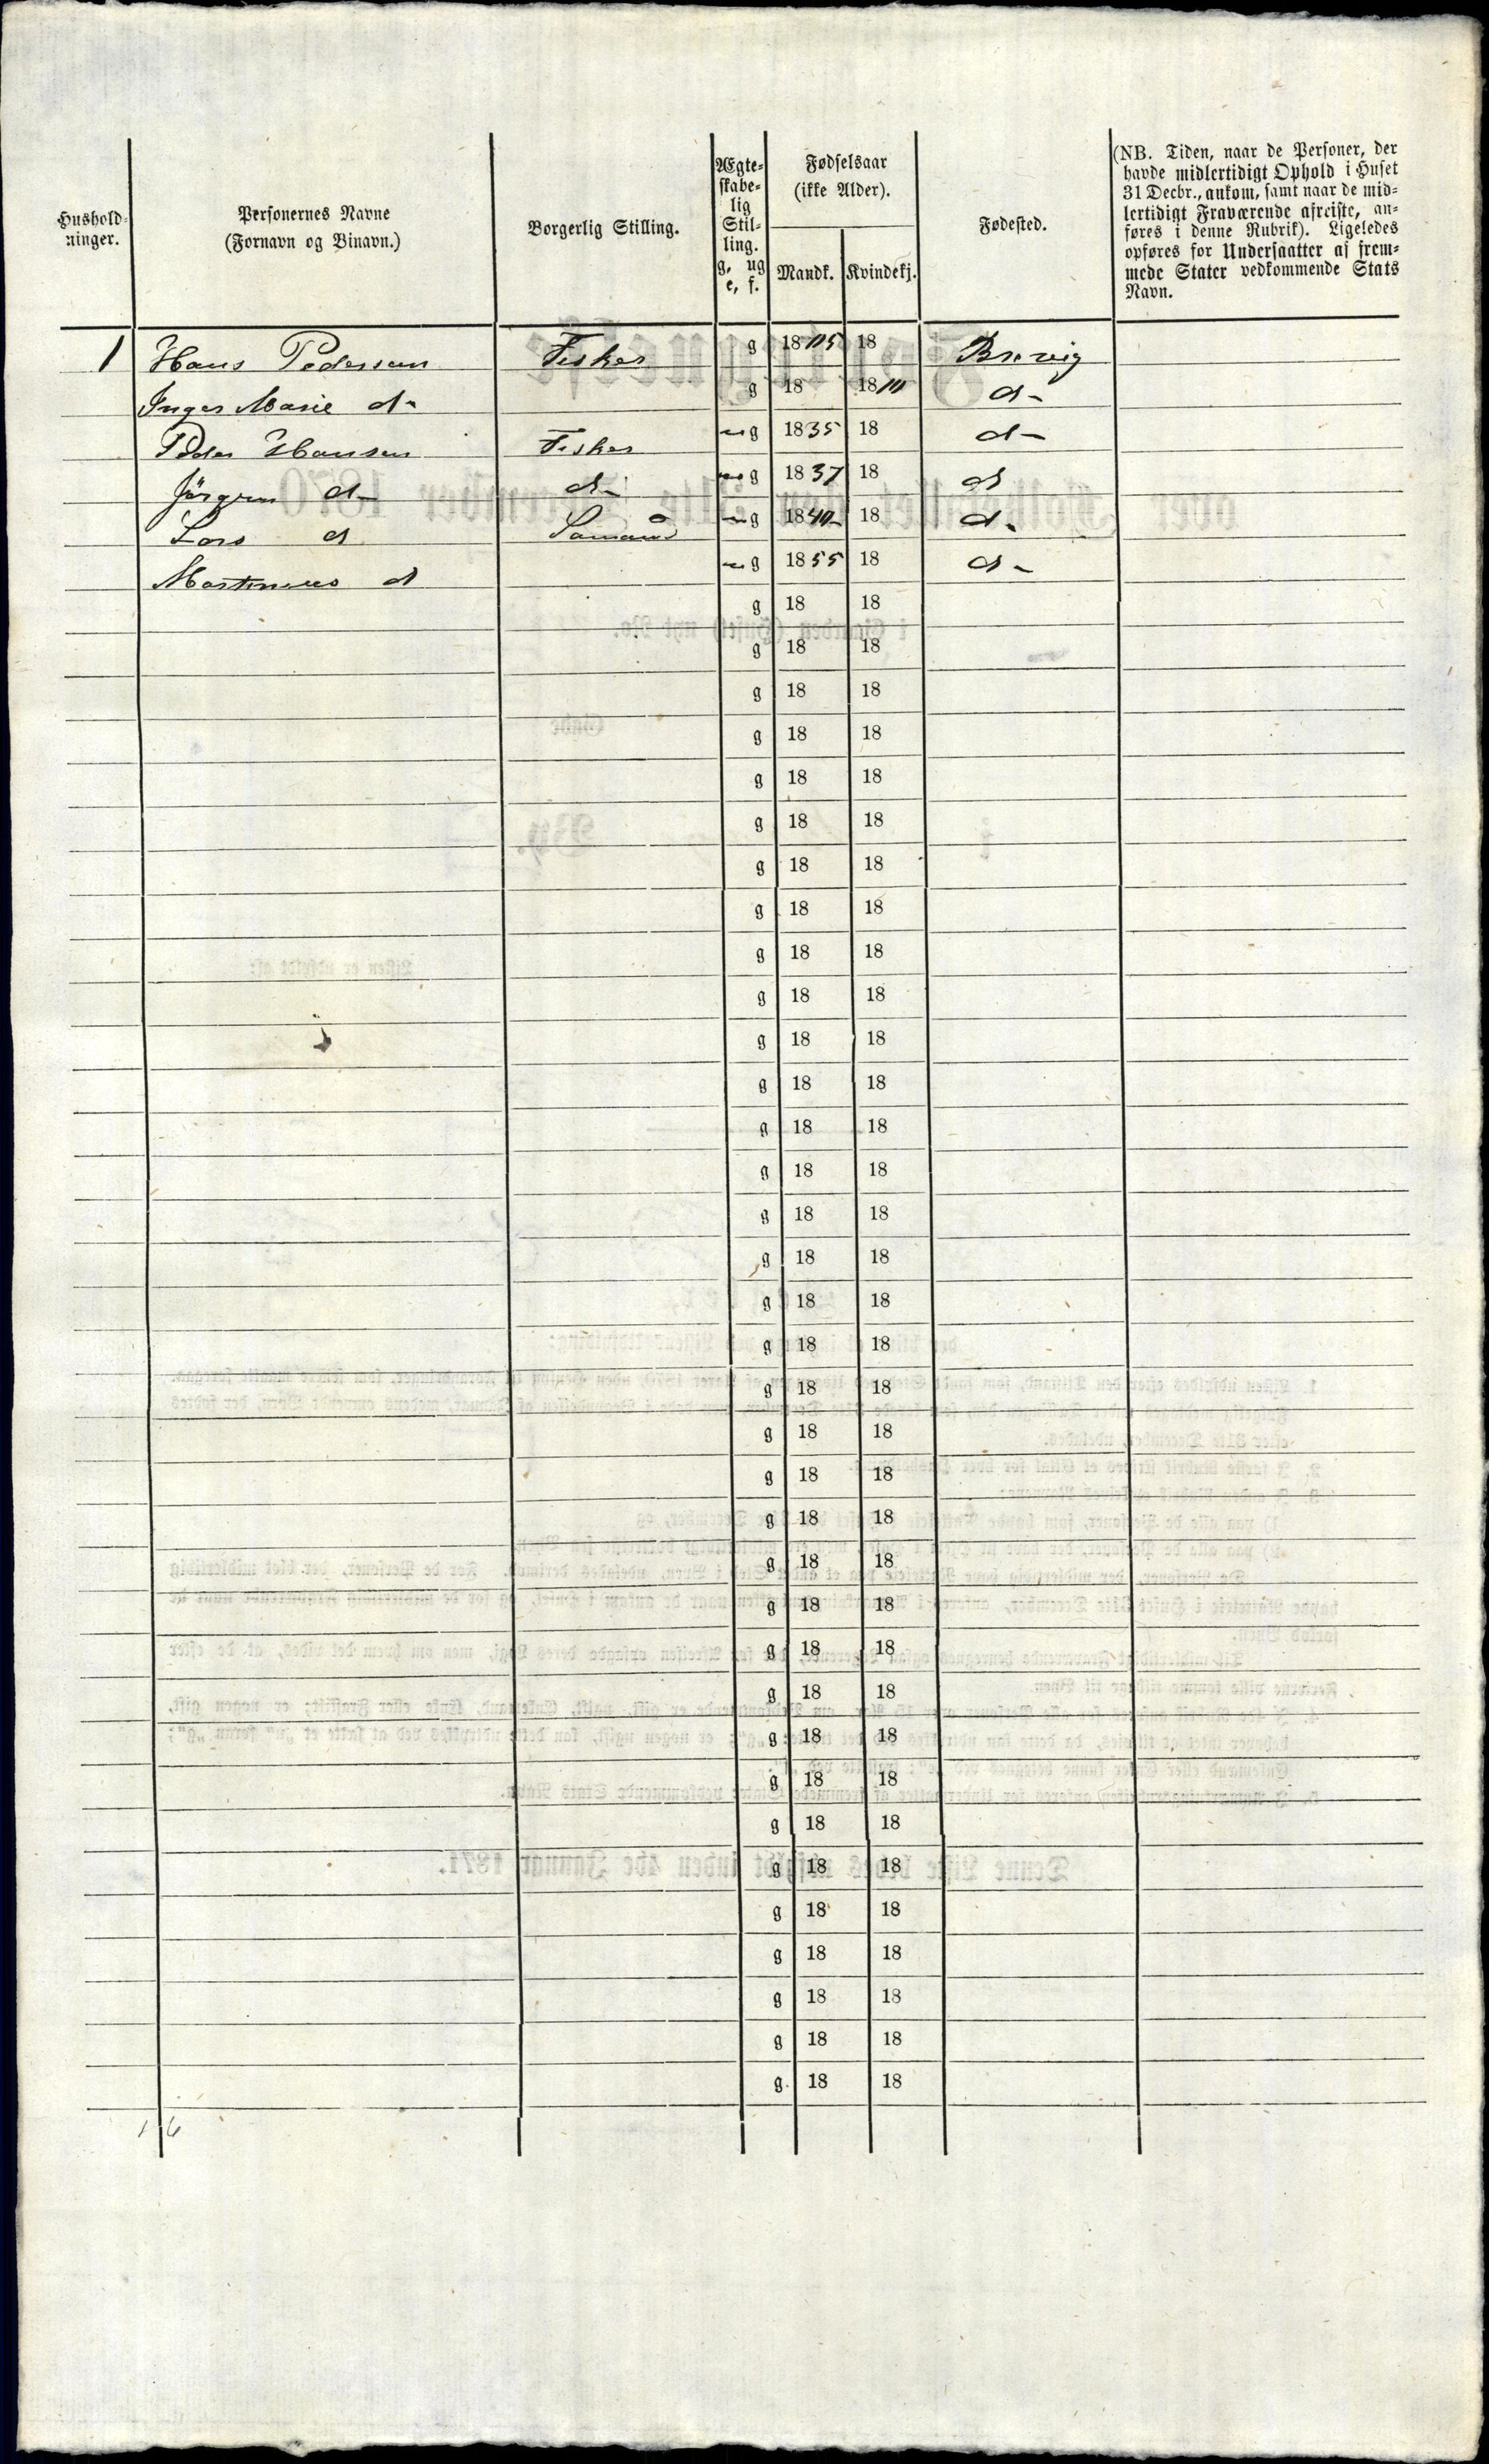 Hushold-
ninger.
Personernes Navne
(Fornavn og Vinavn.)
Borgerlig Stilling.
Ægte-
skabe-
lig
Stil-
ling.
g, ug
e, f.
Fødselsaar
(ikke Alder).
Mandk. Kvindekj.
Fødested.
(NB. Tiden, naar de Personer, der
havde midlertidigt Ophold i Huset
31 Decbr., ankom, samt naar de mid-
lertidigt Fraværende afreiste, an-
føres i denne Rubrik). Ligeledes
opføres for Undersaatter af frem-
mede Stater vedkommende Stats
Navn.
1 Hans Pedersen Fisker g 1805 18 Brevig
Inger Marie do g 18 1810 do
Peder Hansen Fisker ug 1835 18 do
Jörgen do do ug 1837 18 do
Lars do Sömand ug 1840 18 do
Martinius do ug 1855 18 do
g 18 18
g 18 18
g 18 18
g 18 18
g 18 18
g 18 18
g 18 18
g 18 18
g 18 18
g 18 18
g 18 18
g 18 18
g 18 18
g 18 18
g 18 18
g 18 18
g 18 18
g 18 18
g 18 18
g 18 18
g 18 18
g 18 18
g 18 18
g 18 18
g 18 18
g 18 18
g 18 18
g 18 18
g 18 18
g 18 18
g 18 18
g 18 18
g 18 18
g 18 18
g 18 18
1 6